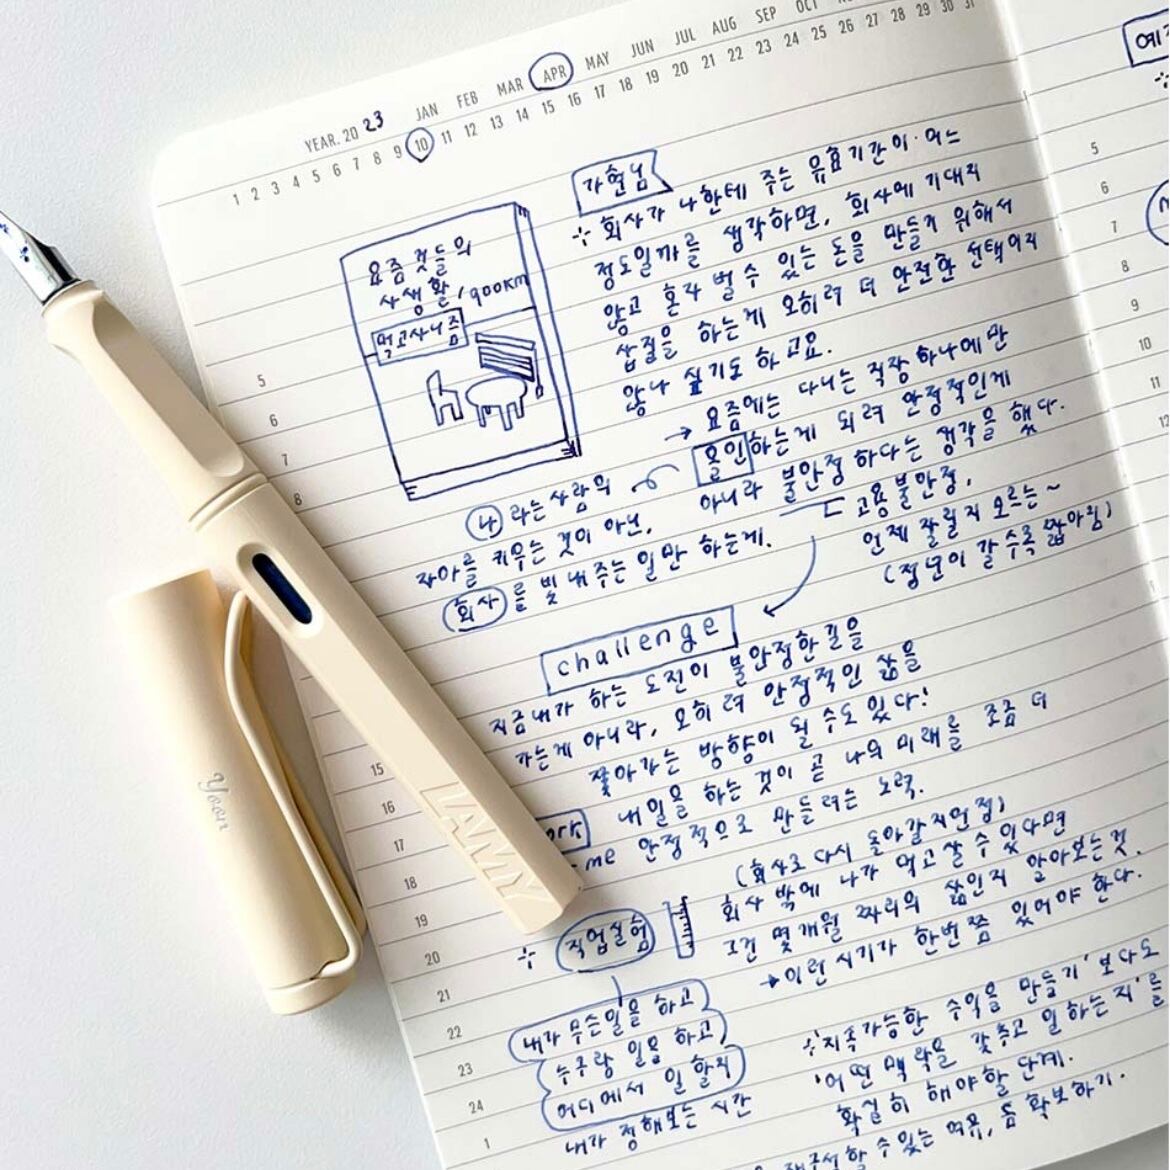 YEAR. 20 23 JAN FEB MAR APR MAY JUN JUL AUG SEP OCT
1 2 3 4 5 6 7 8 9 10 11 12 13 14 15 16 17 18 19 20 21 22 23 24 25 26 27 28 29 30 31
가현님
회사가 나한테 주는 유효기간이 어느
정도일까를 생각하면, 회사에 기대지
않고 혼자 벌 수 있는 돈을 만들기 위해서
삽질을 하는게 오히려 더 안전한 선택이지
않나 싶기도 하고요.
요즘 것들의
사생활, 900km
먹고사니즘
→ 요즘에는 다니는 직장 하나에만
올인하는게 되려 안정적인게
아니라 불안정 하다는 생각을 했다.
고용불안정,
언제 잘릴지 모르는~
(정년이 갈수록 짧아짐)
나 라는 사람의
자아를 키우는 것이 아닌,
회사 를 빛내주는 일만 하는게.
challenge
지금 내가 하는 도전이 불안정한 길을
가는게 아니라, 오히려 안정적인 삶을
찾아가는 방향이 될 수도 있다!
내일을 하는 것이 곧 나의 미래를 조금 더
안정적으로 만들려는 노력.
ork
me
(회사로 다시 돌아갈지언정)
직업실험
회사 밖에 나가 먹고 살 수 있다면
조건 몇개월 짜리의 삶인지 알아보는 것.
→ 이런 시기가 한번쯤 있어야 한다.
내가 무슨일을 하고
누구랑 일을 하고
어디에서 일 할지
내가 정해보는 시간
'지속가능한 수익을 만들기' 보다도
'어떤 맥락을 갖추고 일하는지'를
확실히 해야할 단계.
할 수 있는 여유, 틈 확보하기.
5
6
7
8
15
16
17
18
19
20
21
22
23
24
1
5
6
7
8
9
10
11
12
LAMY
Yoon